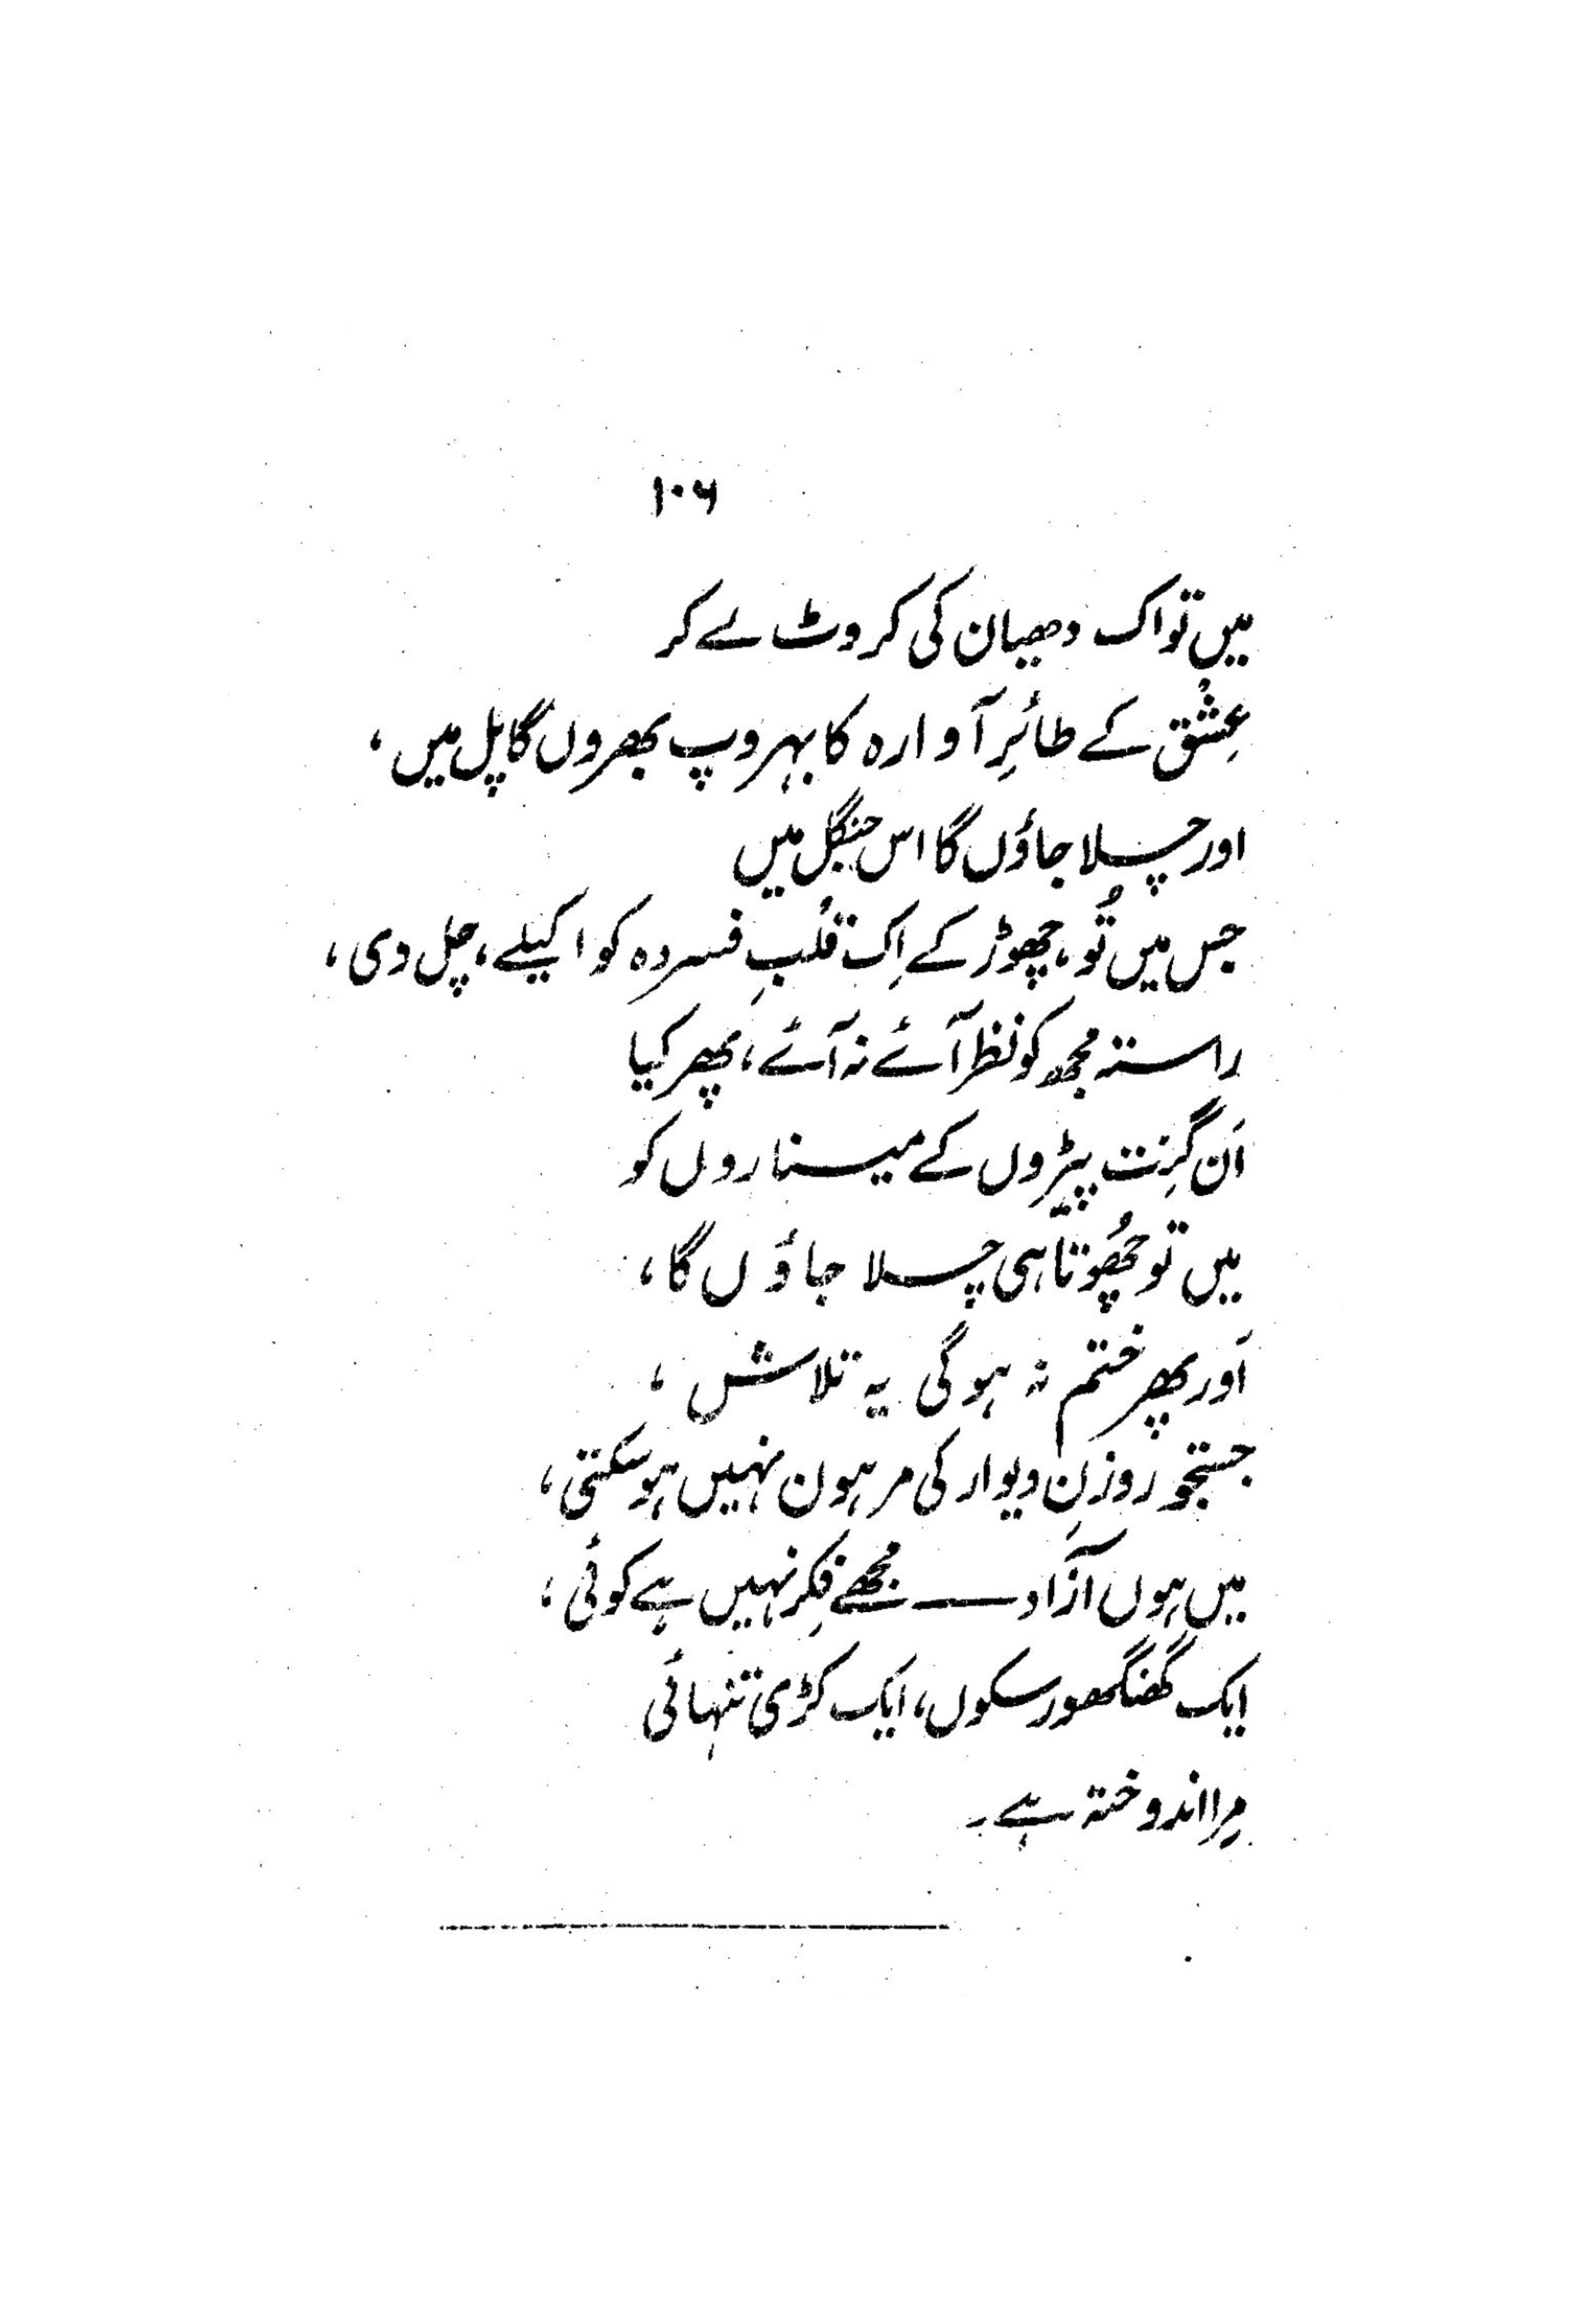 ۱۰۶
میں تو اک دھیان کی کروٹ لے کر
عِشْق کے طائرِ آوارہ کا بہروپ بھروں گا پل میں،
اور چلا جاؤں گا اس جنگل میں
جس میں تُو، چھوڑ کے اِک قلْبِ فسردہ کو اکیلے، چل دی،
راستہ مجھ کو نظر آئے نہ آئے، پھر کیا
اَن گِنت پیڑوں کے میناروں کو
میں تو چُھوتا ہی چلا جاؤں گا،
اَور پھر ختم نہ ہوگی یہ تلاش،
جستجو روزنِ دیوار کی مرہون نہیں ہو سکتی،
میں ہوں آزاد — مُجھے فِکر نہیں ہے کوئی،
ایک گھنگھور سکوں، ایک کڑی تنہائی
مِرا اندوختہ ہے۔